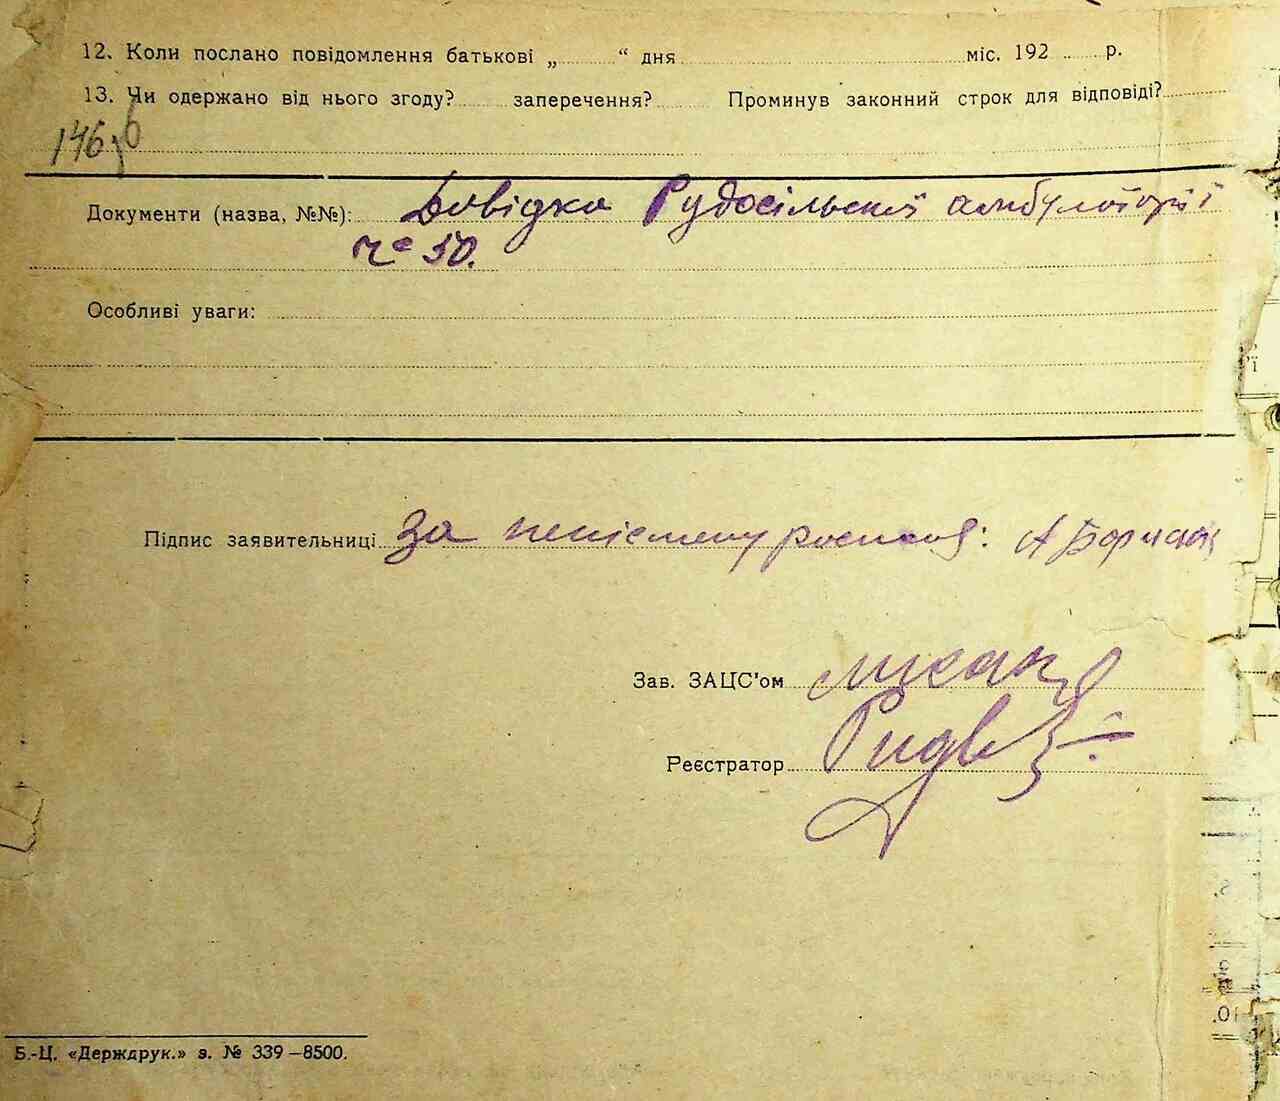 12. Коли послано повідомлення батькові „ “ дня міс. 192 р.
13. Чи одержано від нього згоду? заперечення? Проминув законний строк для відповіді?
146
Документи (назва, №№): Довідка Рудосільської амбулаторії
№ 50.
Особливі уваги:
Підпис заявительниці За неписьмену
Зав. ЗАЦС'ом
Реєстратор
Б.-Ц. «Держдрук.» з. № 339–8500.